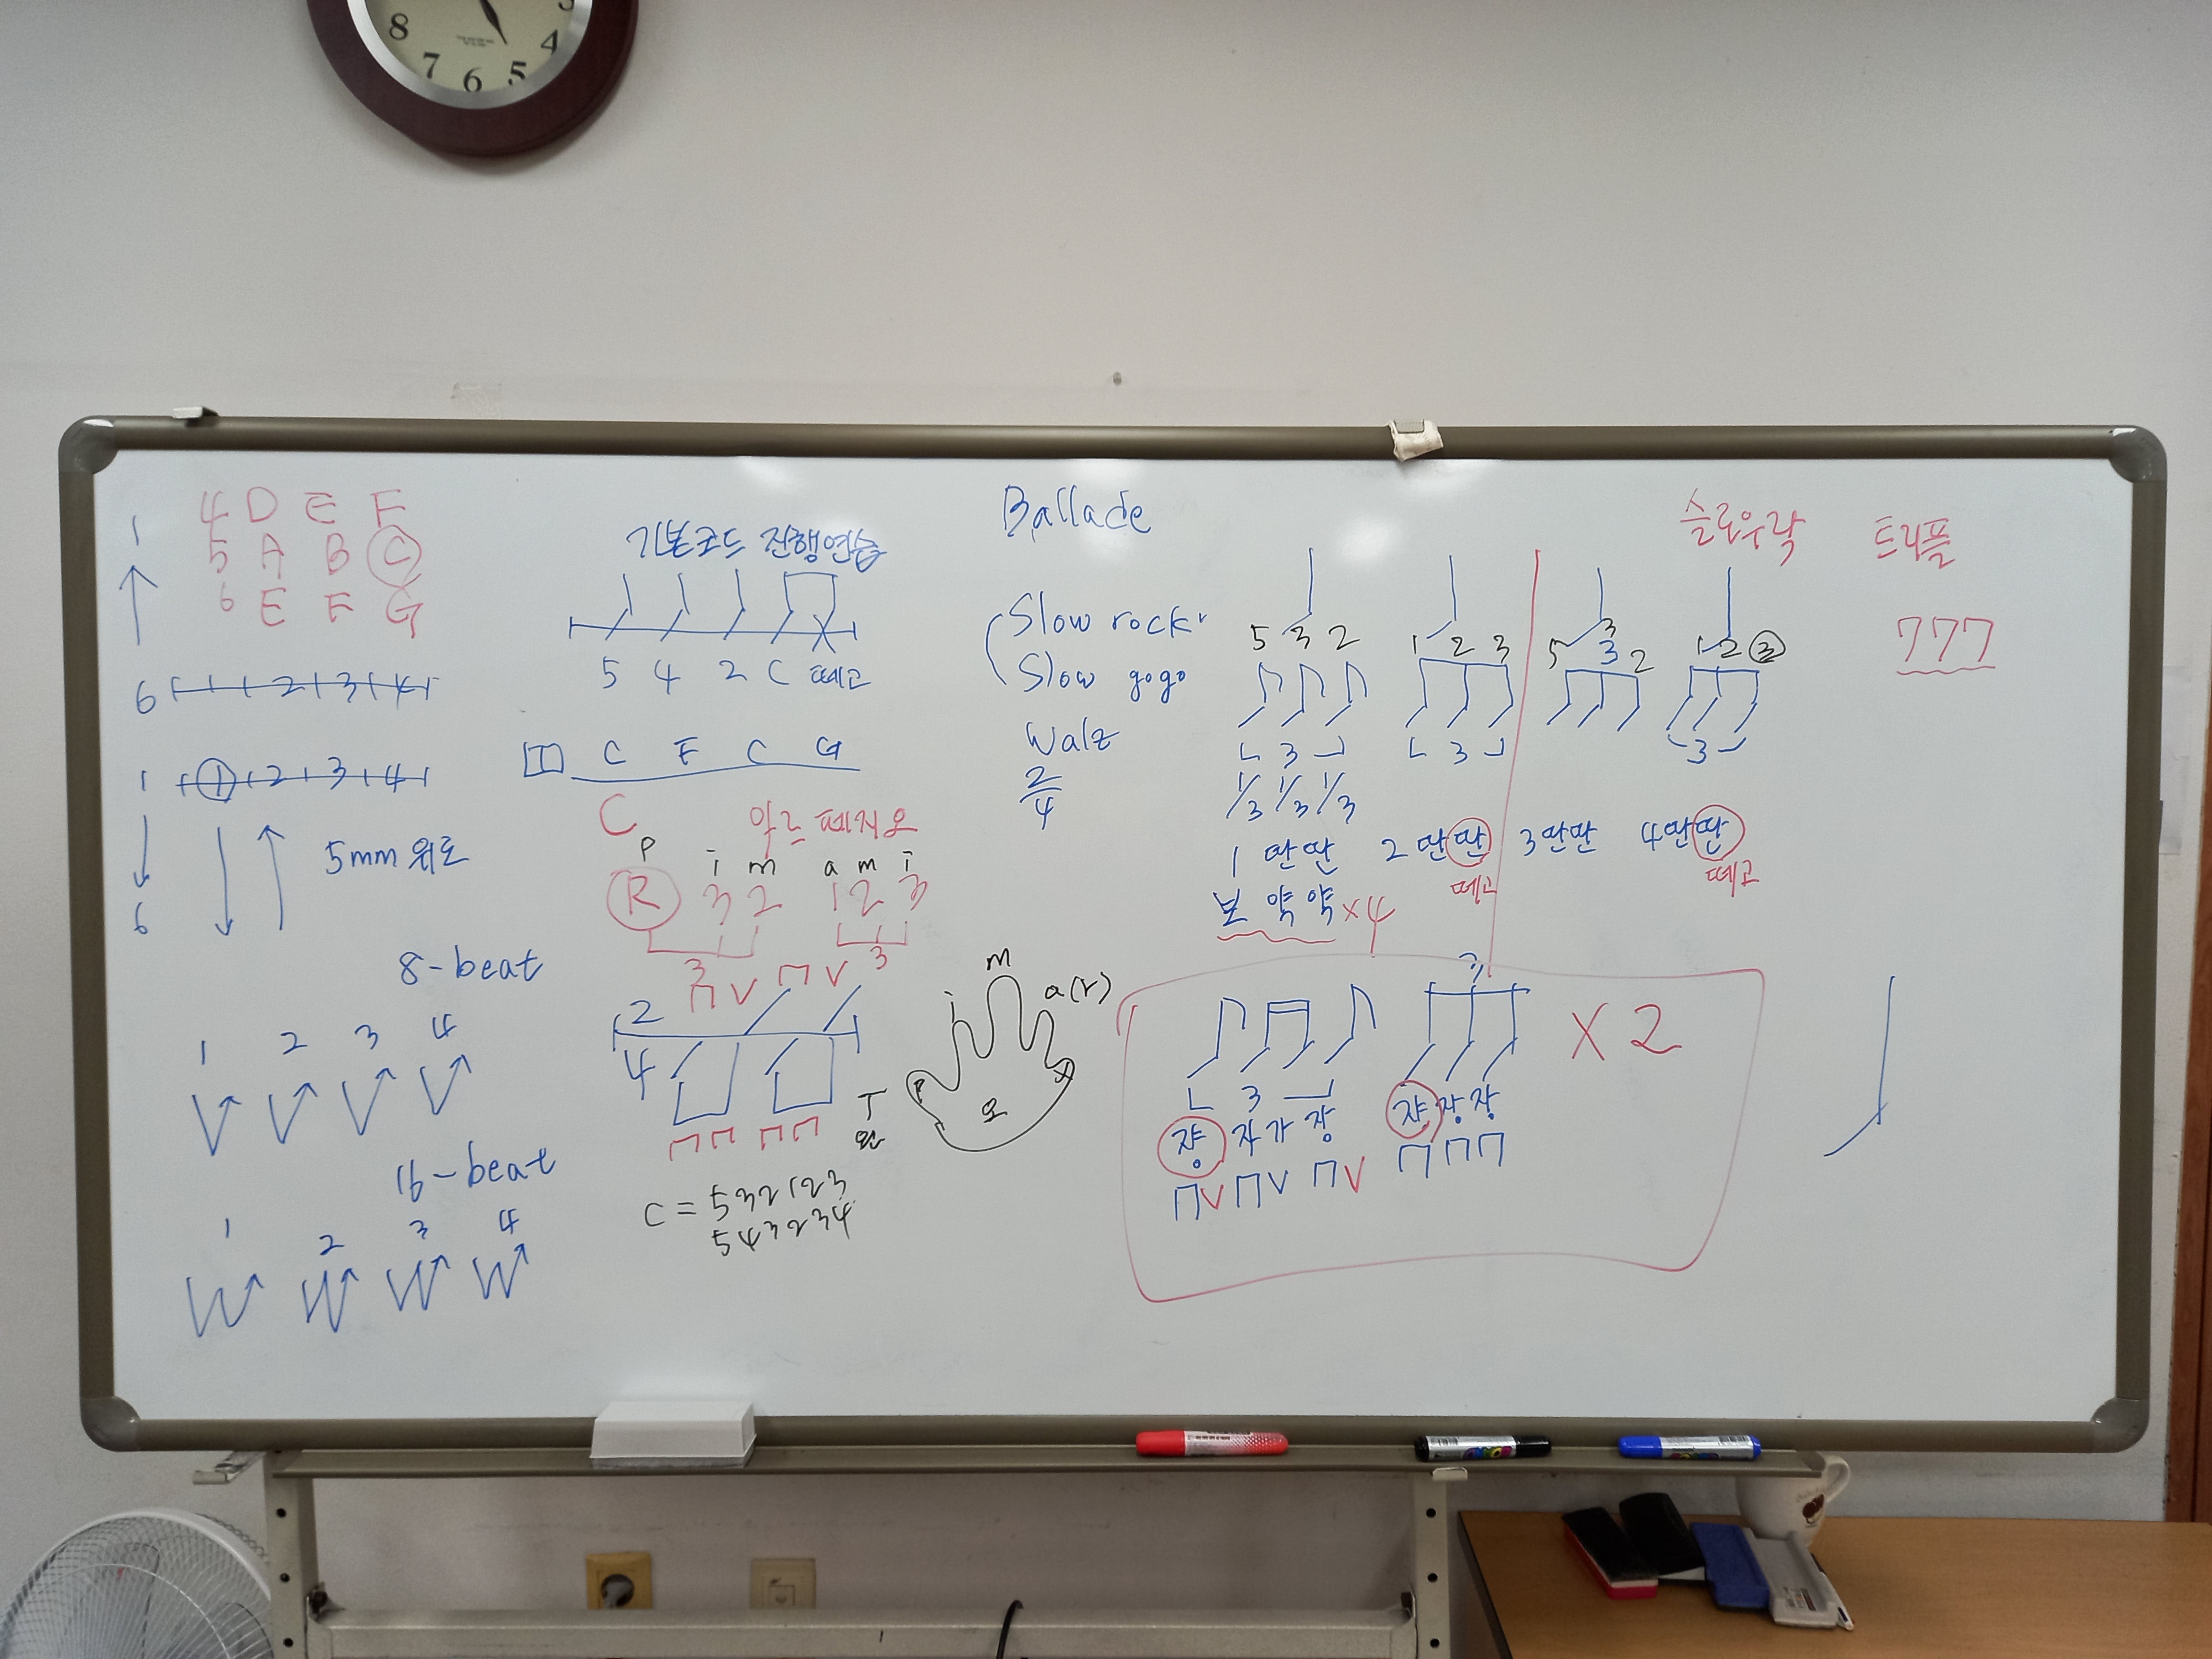 8 7 6 5 4 3
1
4 D E F
5 A B C
6 E F G
6 1 2 3 4
1 1 2 3 4
6
5mm 위로
8-beat
1 2 3 4
16-beat
1 2 3 4
기본코드 진행연습
5 4 2 C 떼고
C F C G
C 아르페지오
P i m a m i
R 3 2 1 2 3
3 3
2
4
T
P i m a(r) x
오
C = 532123
543234
Ballade
Slow rock
Slow gogo
Walz
2
4
슬로우락 트리플
777
5 3 2 1 2 3 5 3 2 1 2 3
3
3 3 3
1/3 1/3 1/3
1 딴딴 2 딴딴 3 딴딴 4 딴딴
떼고 떼고
보 약약 x4
3 3
X 2
쟝 자가 장 쟈 장 장